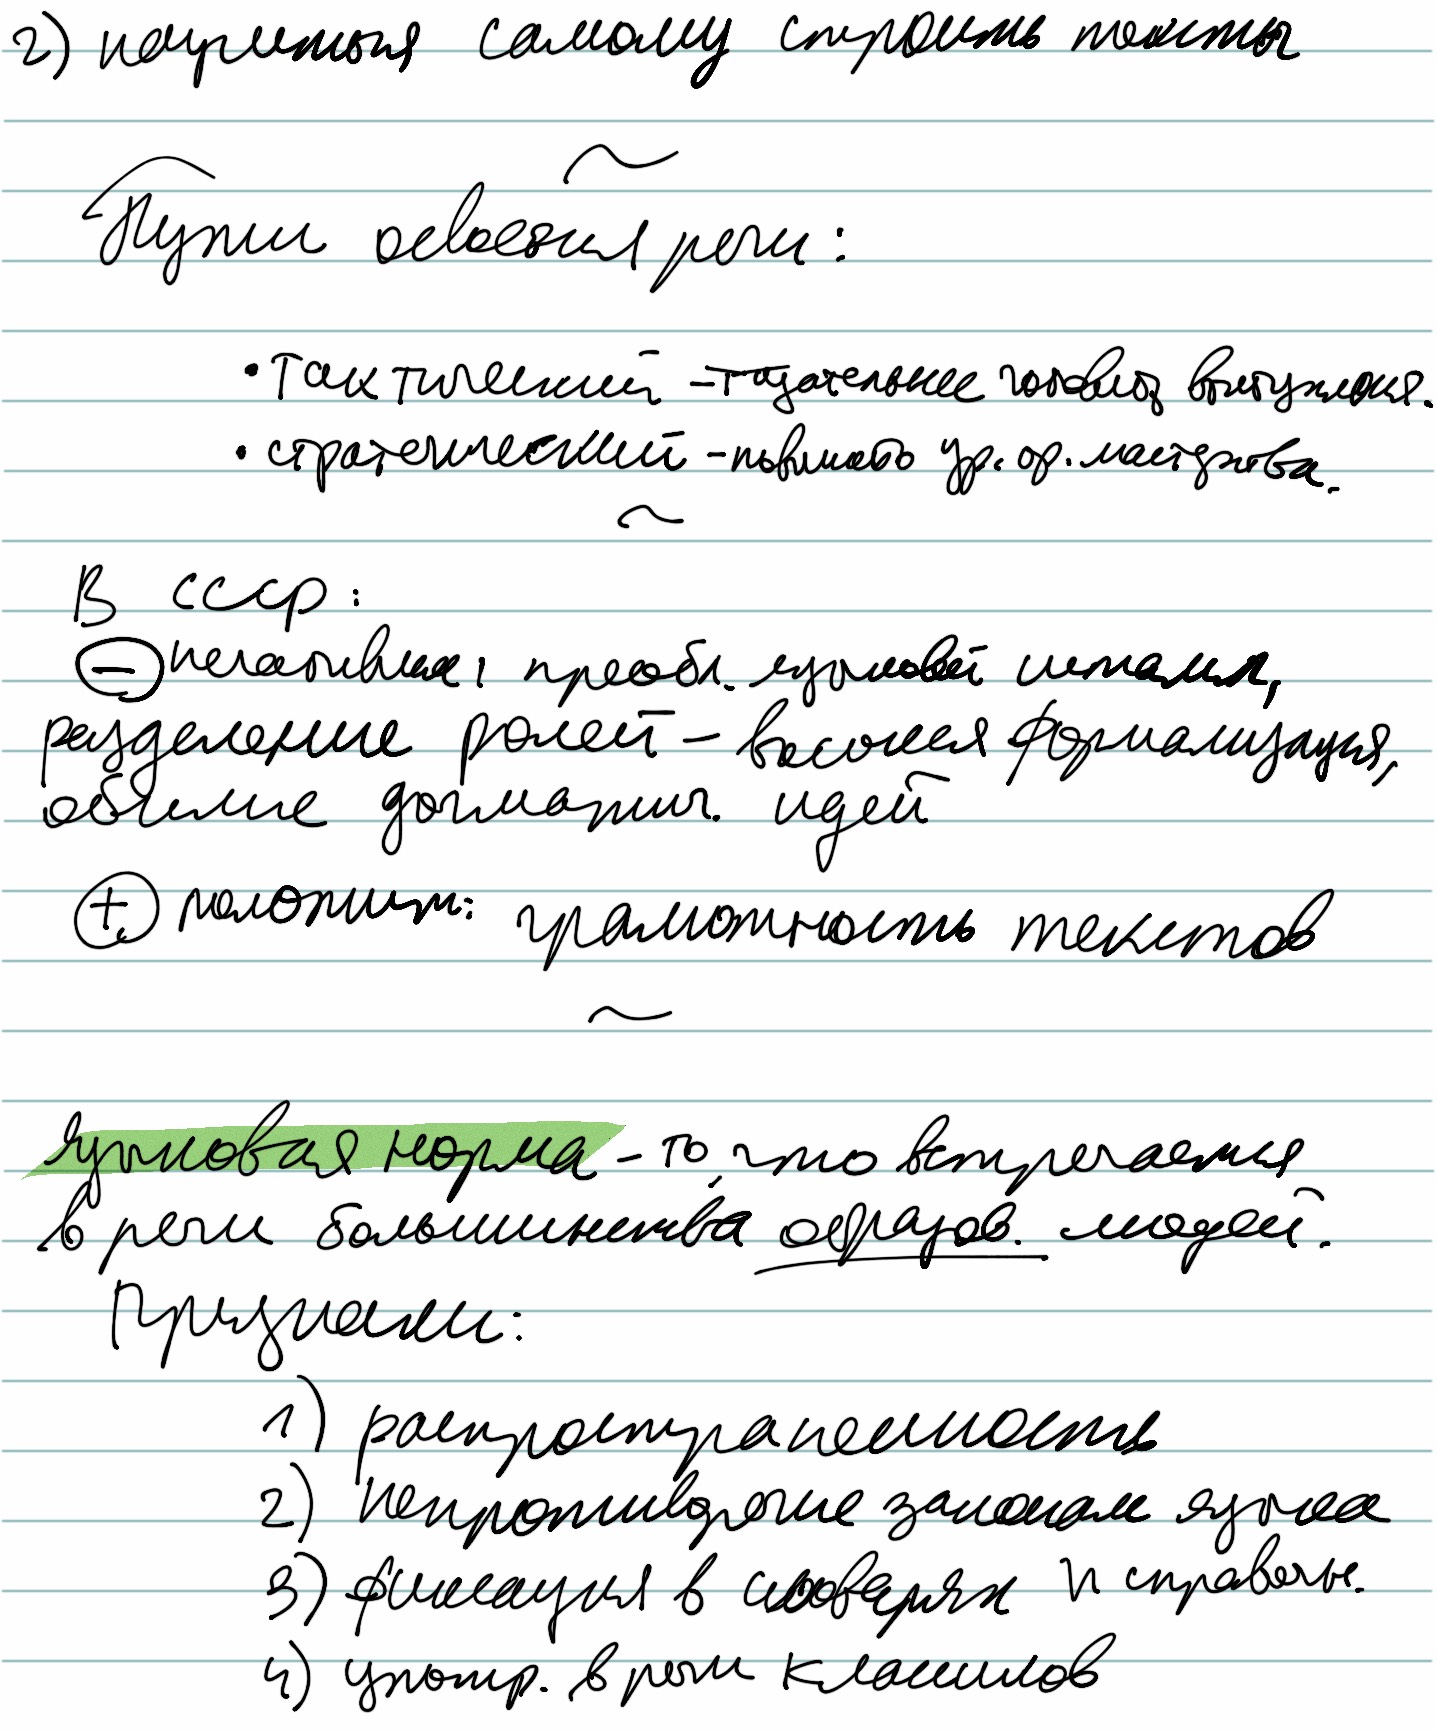 2) научиться самому строить тексты
Пути освоения речи:
• Тактический - тщательнее готовить выступления.
• стратегический - повышать ур. ор. мастерства.
В СССР:
⊖ негативная: преобл. языковой штамп,
разделение ролей - высокая формализация,
обилие догматич. идей
⊕ положит: грамотность текстов
языковая норма - то, что встречается
в речи большинства образов. людей.
Признаки:
1) распространенность
2) непротиворечие законам языка
3) фиксация в словарях и справочн.
4) употр. в речи классиков